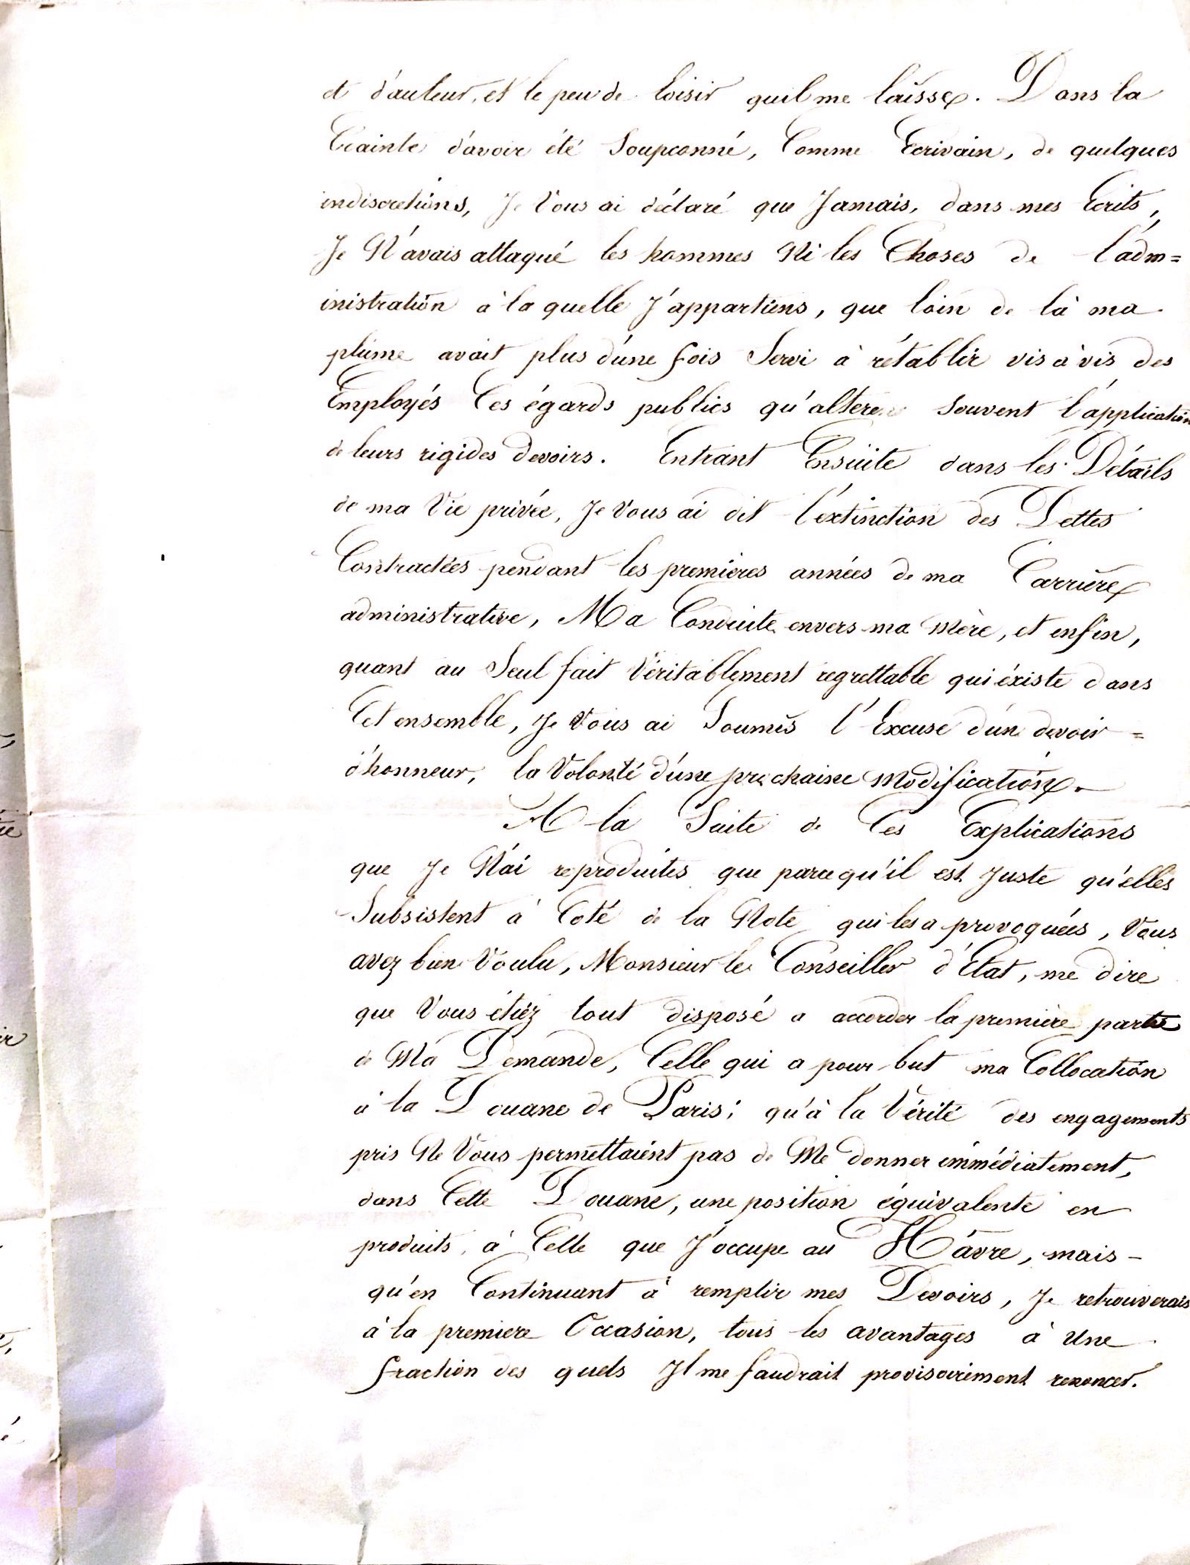 et d'auteur, et le peu de loisir qu'il me laisse. Dans la
Crainte d'avoir été Soupconné, Comme Ecrivain, de quelques
indiscretions, Je Vous ai déclaré que Jamais, dans mes Ecrits,
Je N'avais attaqué les hommes Ni les Choses de l'adm=
inistration à la quelle J'appartiens, que loin de là ma
plume avait plus d'une fois Servi à rétablir vis à vis des
Employés Ces égards publics qu'altère souvent l'application
de leurs rigides devoirs. Entrant Ensuite dans les Détails
de ma Vie privée, Je Vous ai dit l'extinction des Dettes
Contractées pendant les premieres années de ma Carrière
administrative, Ma Conduite envers ma Mère, et enfin,
quant au Seul fait Véritablement regrettable qui éxiste dans
Cet ensemble, Je Vous ai Soumis l'Excuse d'un devoir =
d'honneur, la Volonté d'une prochaine Modification.
A la Suite de Ces Explications
que Je N'ai reproduites que parcequ'il est Juste qu'elles
Subsistent à Coté de la Note qui les a provoquées, Vous
avez bien Voulu, Monsieur le Conseiller d'Etat, me dire
que Vous étiez tout disposé a accorder la première partie
de Ma Demande, Celle qui a pour but ma Collocation
à la Douane de Paris; qu'à la Vérité des engagements
pris Ne Vous permettaient pas de Me donner immédiatement,
dans Cette Douane, une position équivalente en
produits, à Celle que J'occupe au Hâvre, mais -
qu'en Continuant à remplir mes Devoirs, Je retrouverais
à la premiere Occasion, tous les avantages à Une
fraction des quels Il me faudrait provisoirement renoncer.